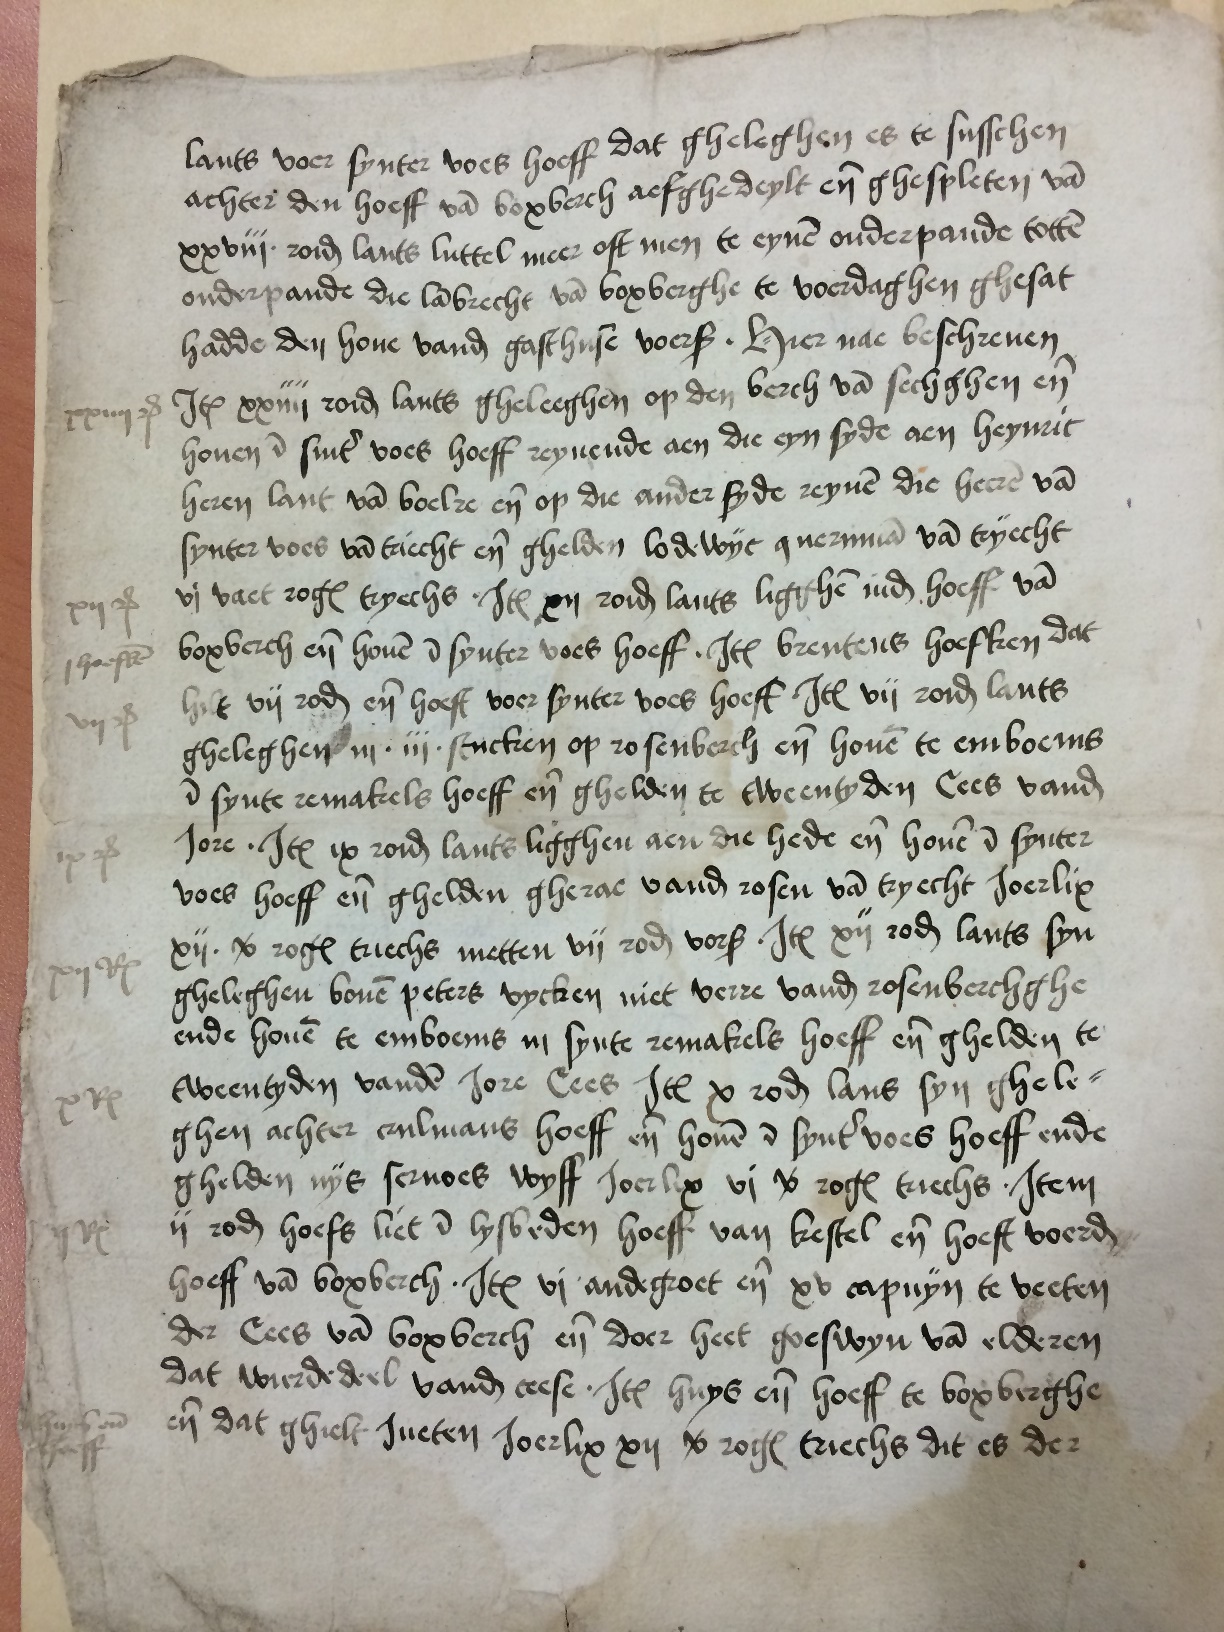 lants voer synter voes hoeff dat gheleghen es te susschen
achter den hoeff vā boxberch aefghedeylt eñ ghespleten vā
xxviij. roid lants luttel meer oft men te eynē onderpande tottē
onderpande die lābrecht vā boxberghe te voerdaghen ghesat
hadde den houe vand gasthuse voers . Hier nae beschreuen
xxiiij r Itē xxiiij roid lants gheleeghen op den berch vā sechghen eñ
houen ī sint' voes hoeff reynende aen die eyn syde aen heynric
heren lant vā boelre eñ op die ander syde reynē die heerē vā
synter voes vā triecht eñ ghelden lodewyc quernmā vā tryecht
xij r vj vaet rogē tryechs . Itē xij roid lants ligghē ind hoeff vā
thoefkē boxberch eñ houē ī synter voes hoeff . Itē brentens hoefken dat
vij r hilt vij rod eñ hoeft voer synter voes hoeff Itē vij roid lants
gheleghen in . iij . stucken op rosenberch eñ houē te emboems
ī synte remakels hoeff eñ ghelden te tweentyden Cees vand
ix r Jore . Itē ix roid lants ligghen aen die hede eñ houē ī synter
voes hoeff eñ ghelden gherae vand rosen vā tryecht Joerlix
xij R xij. v rogē triechs metten vij rod vors . Itē xij rod lants syn
gheleghen bouē peters vycken niet verre vand rosenberchghe
ende houē te emboems in synte remakels hoeff eñ ghelden te
x R tweentyden vandē Jore Cees Itē x rod lans syn ghele-
ghen achter culmans hoeff eñ houē ī synt' voes hoeff ende
ghelden nijs seruoes wyff Joerlix vj v rogē triechs . Item
ij R ij rod hoefs liet ī lysbeden hoeff van kestel eñ hoeft voerd
hoeff vā boxberch . Itē vj andegroet eñ xv capuyn te veeten
der Cees vā boxberch eñ doer heet goeswyn vā elderen
dat vierdedeel vand ceese . Itē huys eñ hoeff te boxberghe
huys eñ hoeff eñ dat ghielt Jueten Joerlix xij v rogē triechs dit es der